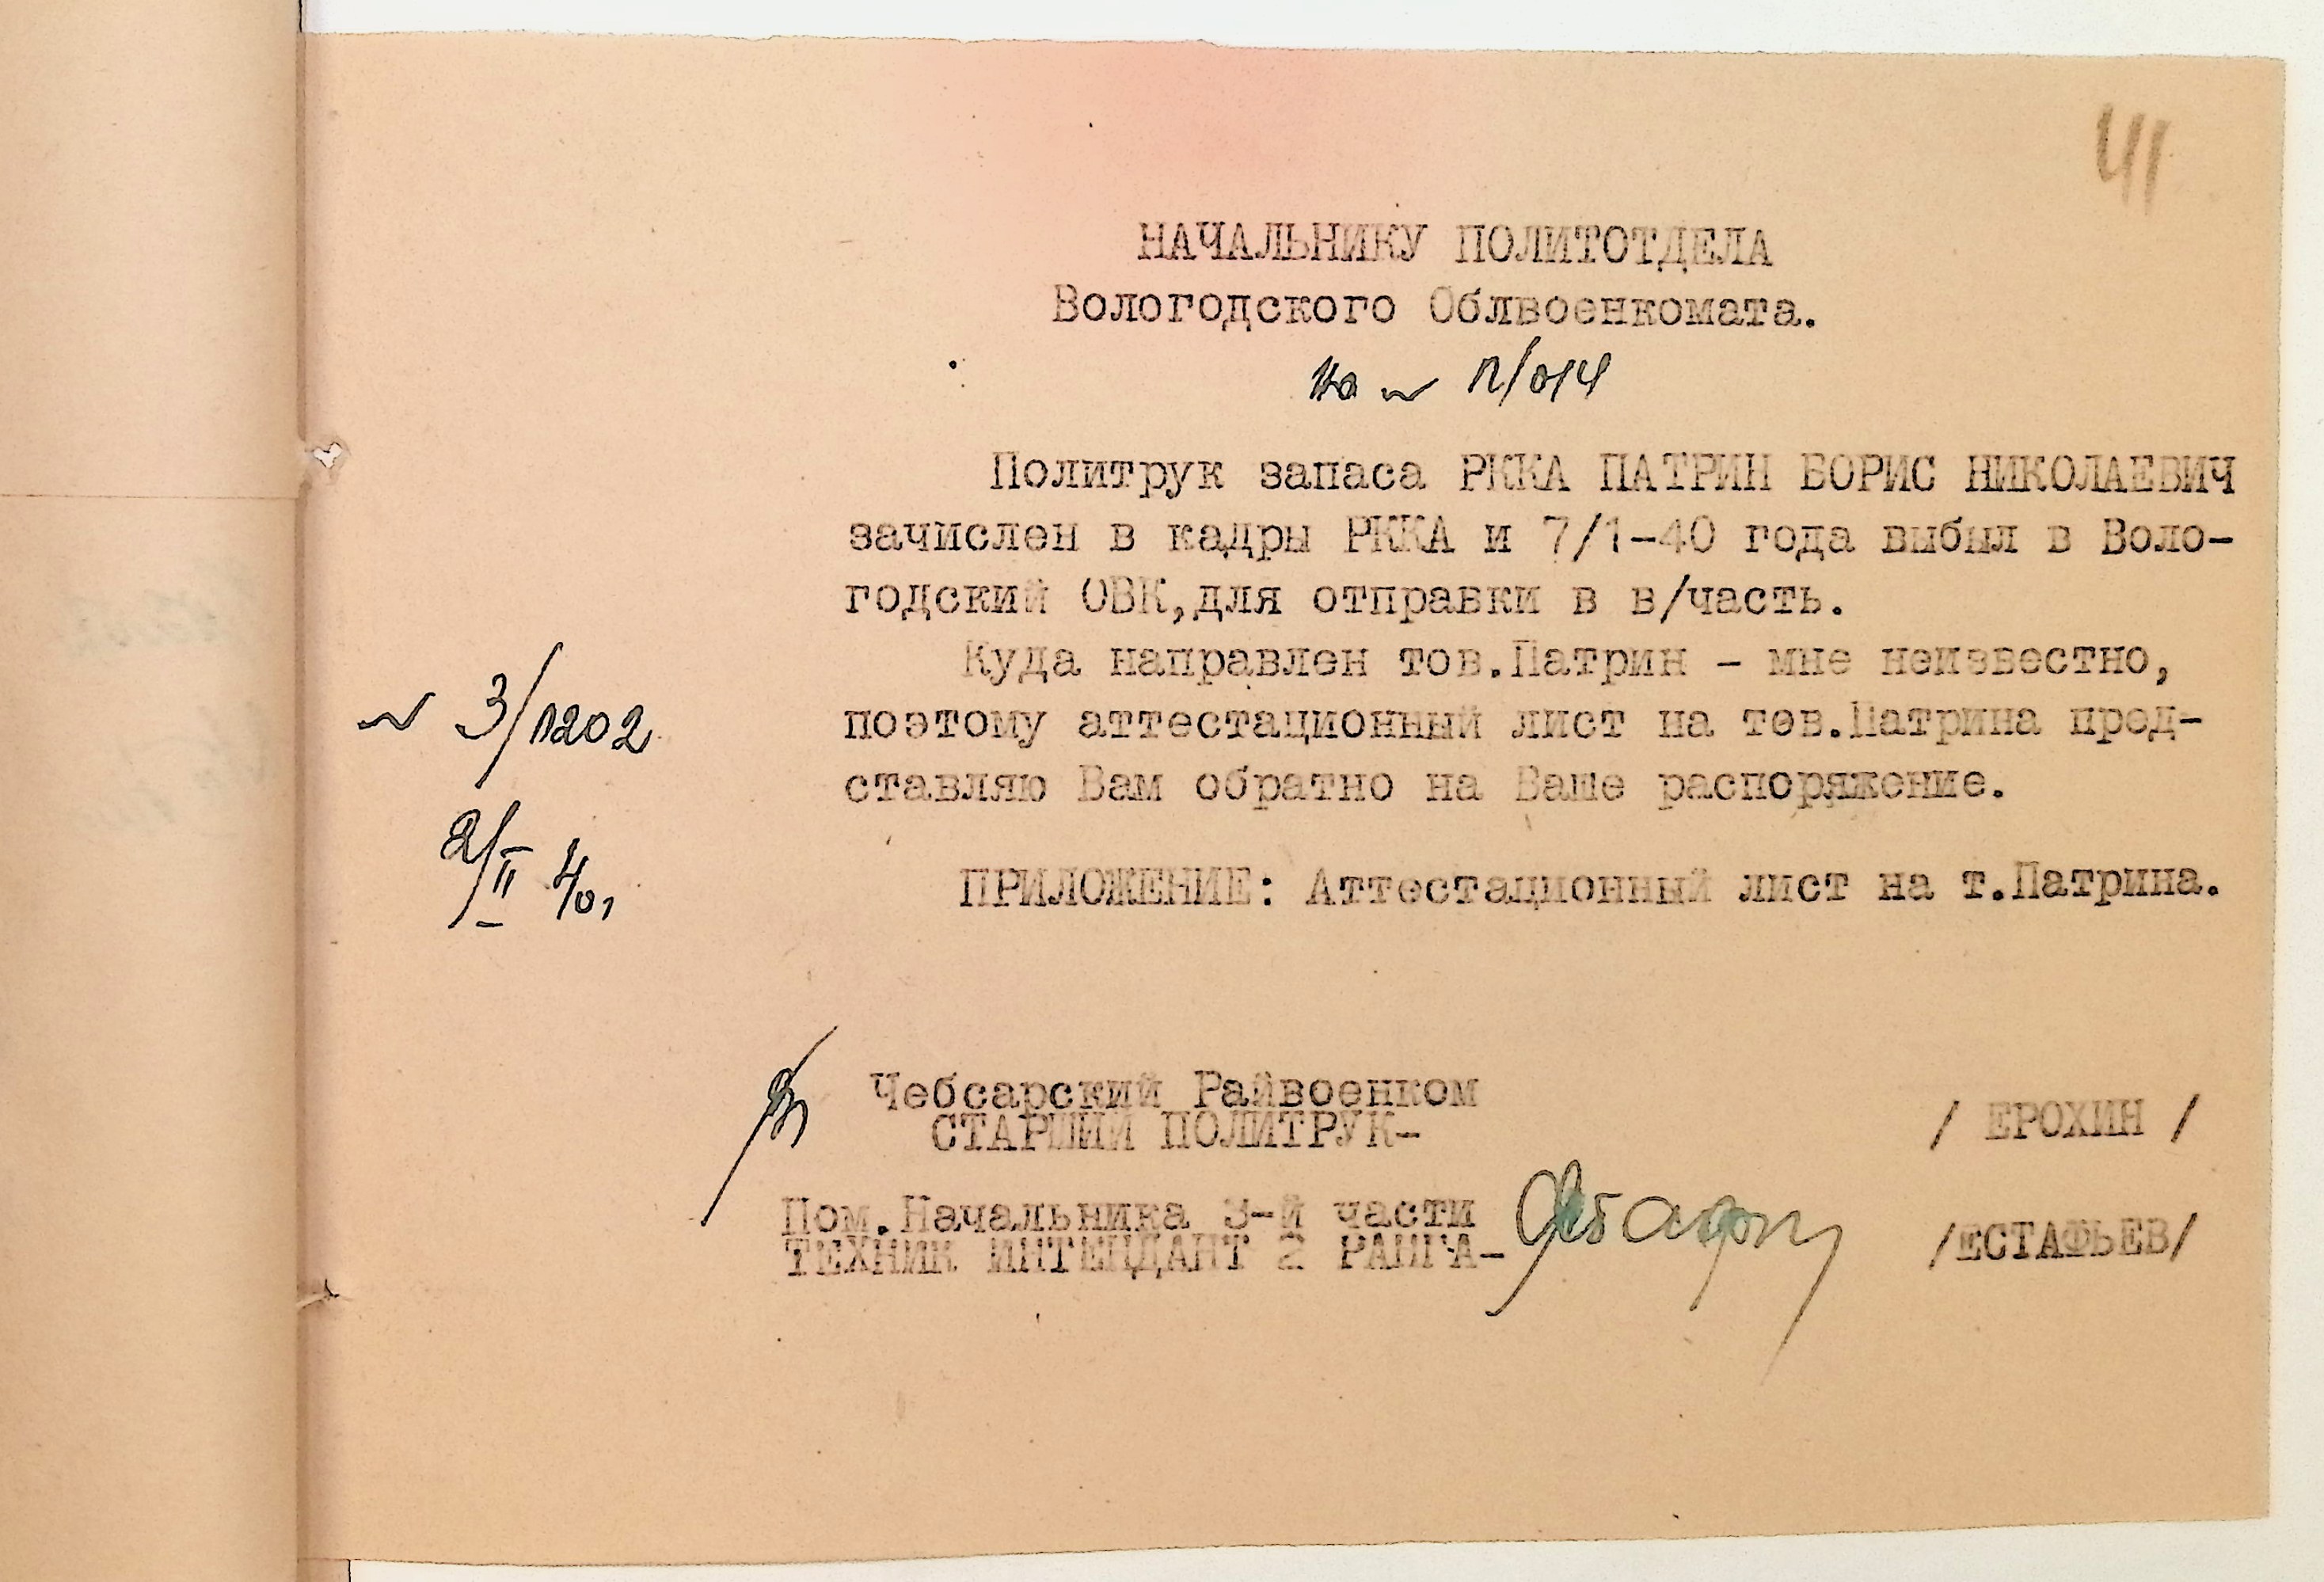 41
НАЧАЛЬНИКУ ПОЛИТОТДЕЛА
Вологодского Облвоенкомата.
на № П/014
Политрук запаса РККА ПАТРИН БОРИС НИКОЛАЕВИЧ
зачислен в кадры РККА и 7/1-40 года выбыл в Воло-
годский ОВК,для отправки в в/часть.
Куда направлен тов.Патрин - мне неизвестно,
поэтому аттестационный лист на тов.Патрина пред-
ставляю Вам обратно на Ваше распоряжение.
№ 3/1202
2/II 40,
ПРИЛОЖЕНИЕ: Аттестационный лист на т.Патрина.
Чебсарский Райвоенком
СТАРШИЙ ПОЛИТРУК-
/ ЕРОХИН /
Пом.Начальника 3-й части
ТЕХНИК ИНТЕНДАНТ 2 РАНГА-
/ЕСТАФЬЕВ/